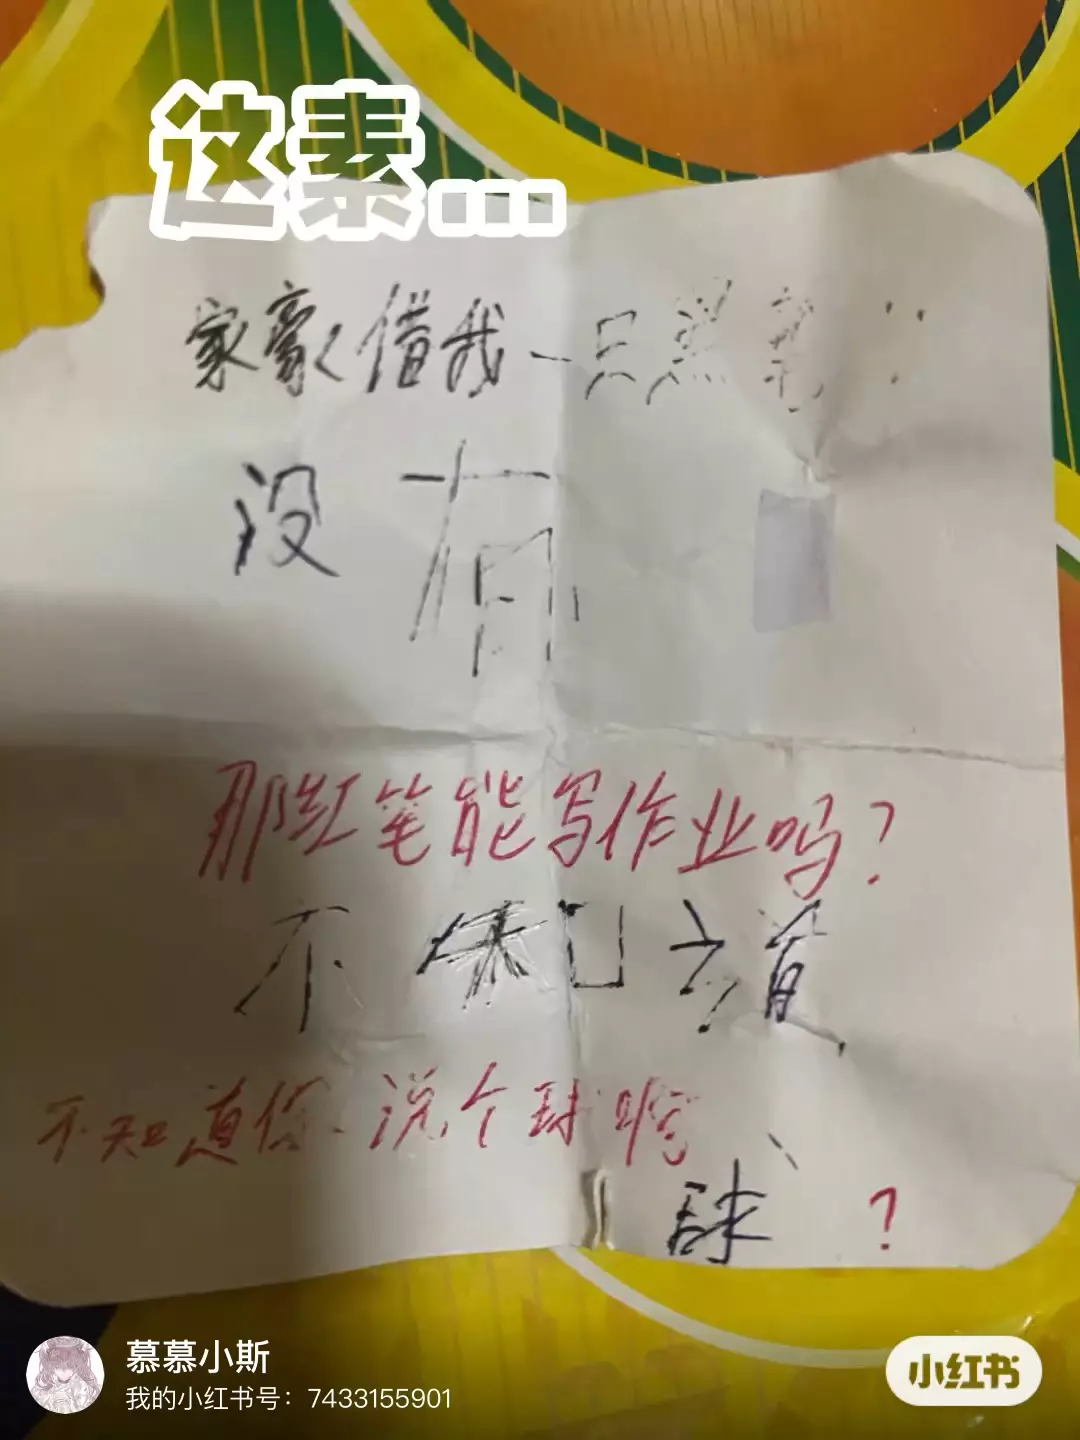 这素...
家豪借我一只黑笔
没有
那红笔能写作业吗？
不知道
不知道你说个球啊
球 ？
慕慕小斯
我的小红书号：7433155901
小红书